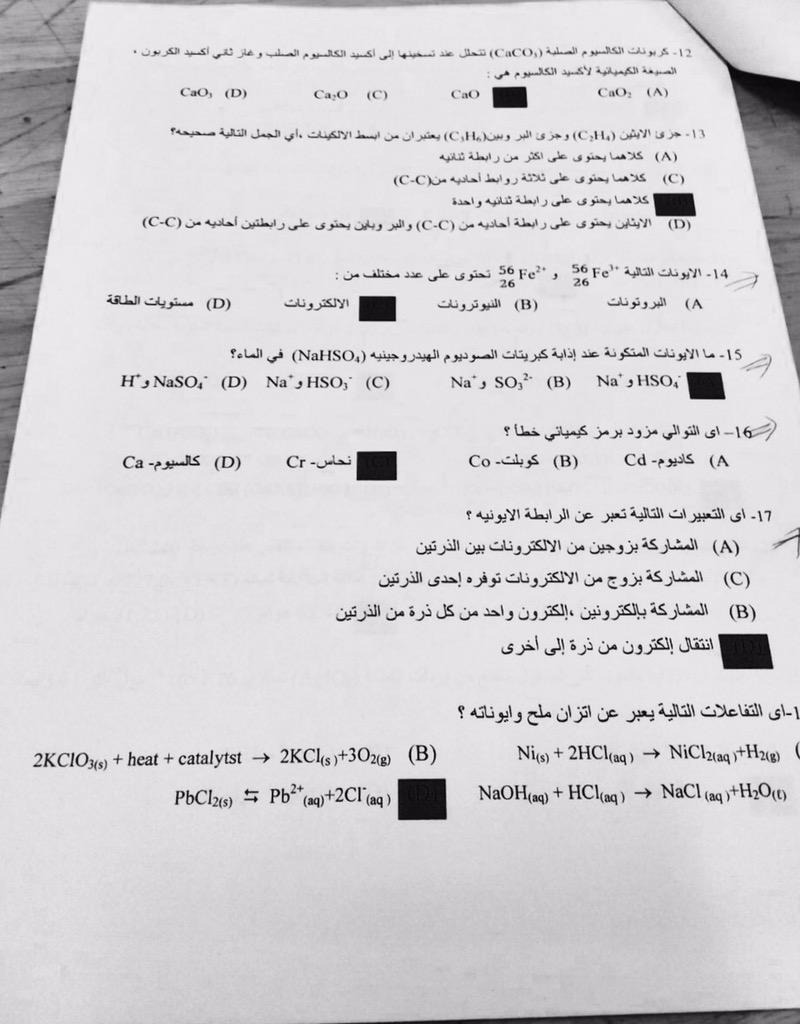 12- كربونات الكالسيوم الصلبة (CaCO₃) تتحلل عند تسخينها إلى أكسيد الكالسيوم الصلب وغاز ثاني أكسيد الكربون ،
الصيغة الكيميائية لأكسيد الكالسيوم هي :
(A) CaO₂ CaO (C) Ca₂O (D) CaO₃
13- جزئ الايثين (C₂H₄) وجزئ البروبين (C₃H₆) يعتبران من ابسط الالكينات ،أي الجمل التالية صحيحه؟
(A) كلاهما يحتوى على اكثر من رابطة ثنائيه
(C) كلاهما يحتوى على ثلاثة روابط أحاديه من (C-C)
كلاهما يحتوى على رابطة ثنائيه واحدة
(D) الايثاين يحتوى على رابطة أحاديه من (C-C) والبر وباين يحتوى على رابطتين أحاديه من (C-C)
14- الايونات التالية ⁵⁶₂₆Fe³⁺ و ⁵⁶₂₆Fe²⁺ تحتوى على عدد مختلف من :
A) البروتونات (B) النيوترونات الالكترونات (D) مستويات الطاقة
15- ما الايونات المتكونة عند إذابة كبريتات الصوديوم الهيدروجينيه (NaHSO₄) في الماء؟
HSO₄⁻ و Na⁺ (B) SO₃²⁻ و Na⁺ (C) HSO₃⁻ و Na⁺ (D) NaSO₄⁻ و H⁺
16– اى التوالي مزود برمز كيميائي خطأ ؟
A) كاديوم- Cd (B) كوبلت- Co (C) نحاس- Cr (D) كالسيوم- Ca
17- اى التعبيرات التالية تعبر عن الرابطة الايونيه ؟
(A) المشاركة بزوجين من الالكترونات بين الذرتين
(C) المشاركة بزوج من الالكترونات توفره إحدى الذرتين
(B) المشاركة بإلكترونين ،إلكترون واحد من كل ذرة من الذرتين
(D) انتقال إلكترون من ذرة إلى أخرى
1-اى التفاعلات التالية يعبر عن اتزان ملح وايوناته ؟
( Ni(s) + 2HCl(aq) → NiCl₂(aq)+H₂(g) (B) 2KClO₃(s) + heat + catalytst → 2KCl(s)+3O₂(g)
NaOH(aq) + HCl(aq) → NaCl(aq)+H₂O(ℓ) (D) PbCl₂(s) ⇆ Pb²⁺(aq)+2Cl⁻(aq)